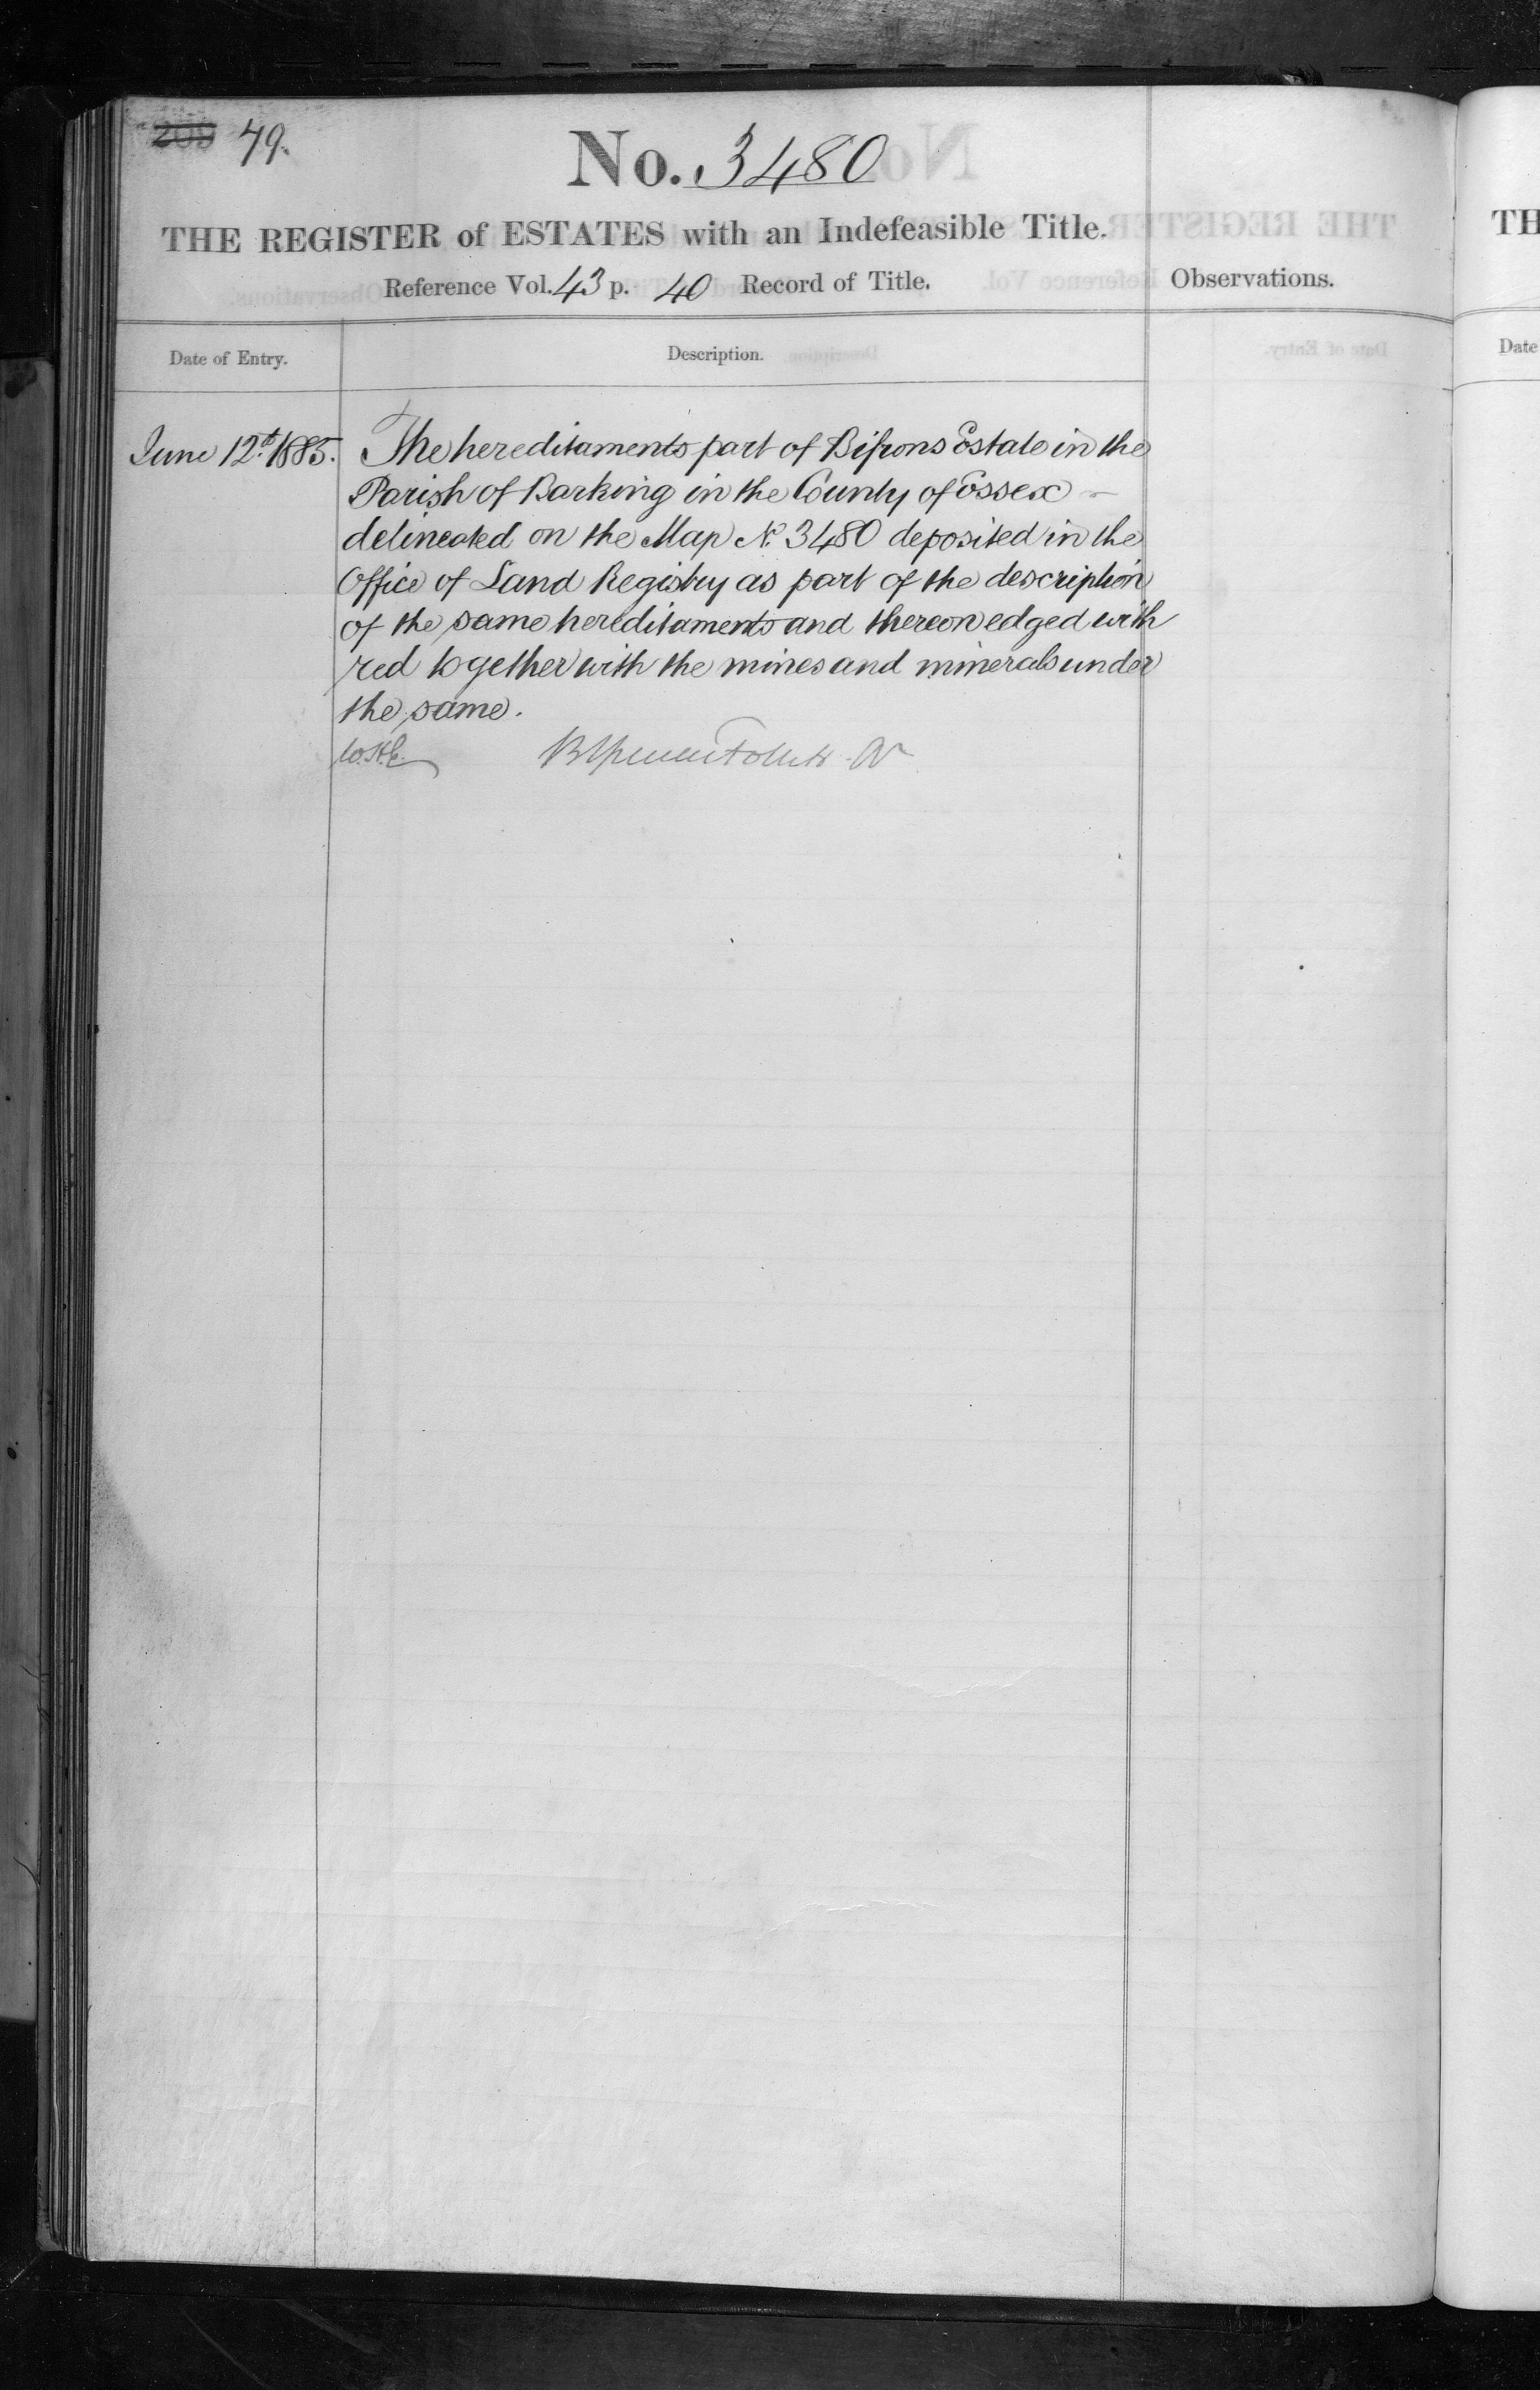 209 79.
No. 3480
THE REGISTER of ESTATES with an Indefeasible Title.
Reference Vol. 43 p. 40 Record of Title.
Observations.
Date of Entry.
Description.
June 12th 1885.
The hereditaments part of Bifrons Estate in the
Parish of Barking in the County of Essex
delineated on the Map No. 3480 deposited in the
Office of Land Registry as part of the description
of the same hereditaments and thereon edged with
red together with the mines and minerals under
the same.
TH
Date